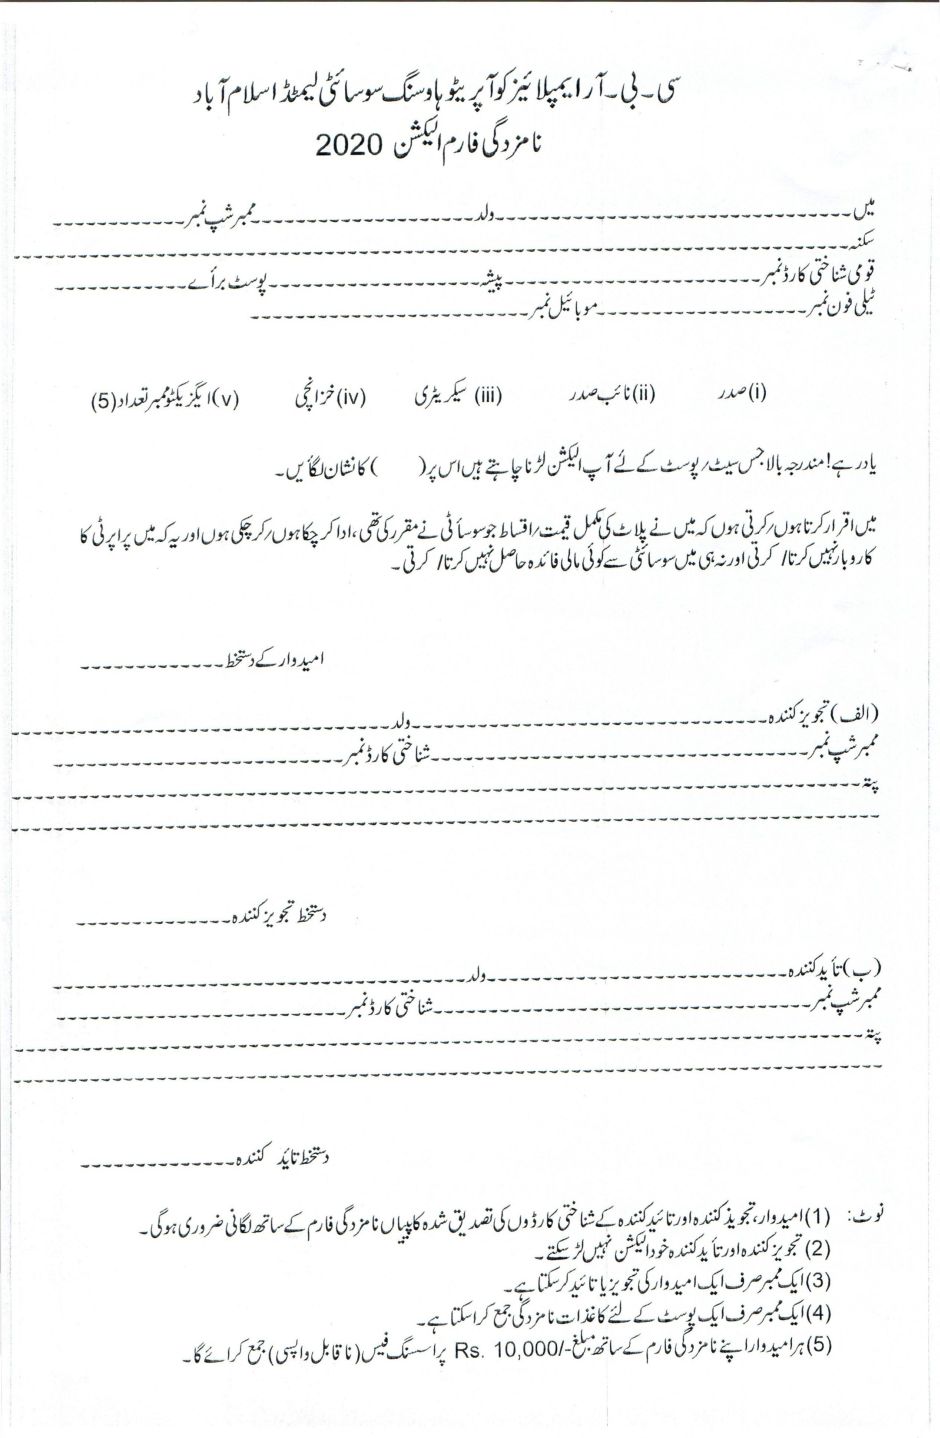 سی۔بی۔آر ایمپلائیز کوآپریٹو ہاوسنگ سوسائٹی لیمٹڈ اسلام آباد
نامزدگی فارم الیکشن 2020
میں ------------------------------ولد --------------------ممبر شپ نمبر------------
سکنہ --------------------------------------------------------------------------
قومی شناختی کارڈ نمبر------------------------پیشہ--------------------پوسٹ برأے------------
ٹیلی فون نمبر--------------------موبائیل نمبر--------------------------
(i) صدر (ii) نائب صدر (iii) سیکریٹری (iv) خزانچی (v) ایگزیکٹو ممبر تعداد (5)
یاد رہے! مندرجہ بالا جس سیٹ/پوسٹ کے لئے آپ الیکشن لڑنا چاہتے ہیں اس پر ( ) کا نشان لگأیں۔
میں اقرار کرتا ہوں/کرتی ہوں کہ میں نے پلاٹ کی مکمل قیمت/اقساط جو سوسأئٹی نے مقرر کی تھی، ادا کر چکا ہوں/کر چکی ہوں اور یہ کہ میں پراپرٹی کا
کاروبار نہیں کرتا/ کرتی اور نہ ہی میں سوسائٹی سے کوئی مالی فائدہ حاصل نہیں کرتا/ کرتی ۔
امیدوار کے دستخط-------------
(الف) تجویز کنندہ----------------------------------ولد------------------------------------
ممبر شپ نمبر------------------------------------شناختی کارڈ نمبر----------------------------
پتہ--------------------------------------------------------------------------------
----------------------------------------------------------------------------------
دستخط تجویز کنندہ--------------
(ب) تأید کنندہ----------------------------ولد----------------------------------------
ممبر شپ نمبر------------------------------------شناختی کارڈ نمبر----------------------------
پتہ--------------------------------------------------------------------------------
----------------------------------------------------------------------------------
دستخط تائد کنندہ--------------
نوٹ: (1) امیدوار، تجویذ کنندہ اور تائید کنندہ کے شناختی کارڈوں کی تصدیق شدہ کاپیاں نامزدگی فارم کے ساتھ لگانی ضروری ہوگی۔
(2) تجویز کنندہ اور تأید کنندہ خود الیکشن نہیں لڑ سکتے۔
(3) ایک ممبر صرف ایک امیدوار کی تجویز یا تائید کر سکتا ہے۔
(4) ایک ممبر صرف ایک پوسٹ کے لئے کاغذات نامزدگی جمع کرا سکتا ہے۔
(5) ہر امیدوار اپنے نامزدگی فارم کے ساتھ مبلغ Rs. 10,000/- پراسسنگ فیس (ناقابل واپسی) جمع کرائے گا۔